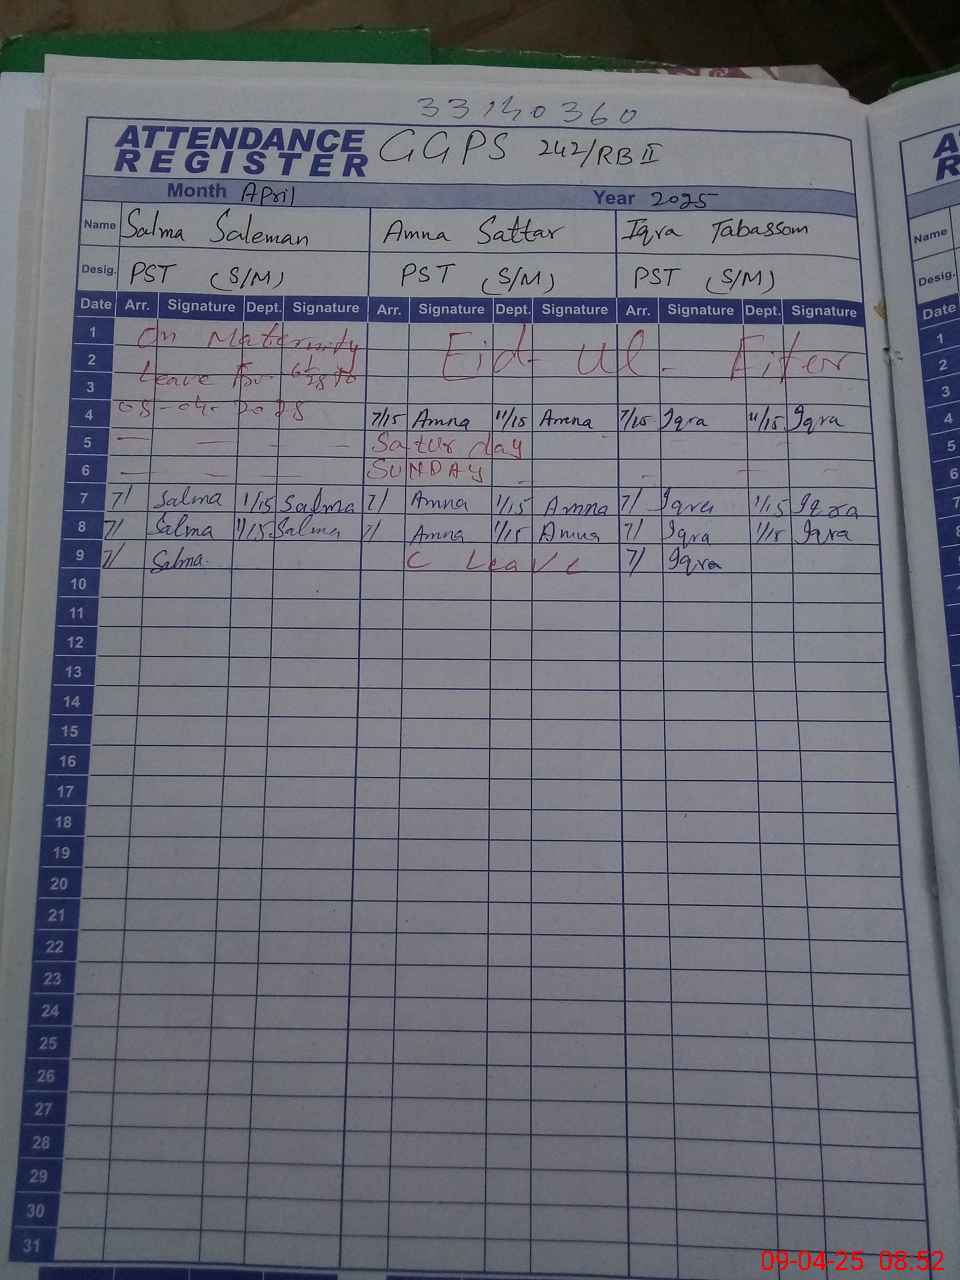 33140360
ATTENDANCE REGISTER GGPS 242/RB II
Month April Year 2025
Name Salma Saleman Amna Sattar Iqra Tabassom
Desig. PST (S/M) PST (S/M) PST (S/M)
Date Arr. Signature Dept. Signature Arr. Signature Dept. Signature Arr. Signature Dept. Signature
1 On Maternity Eid- Ul - Fiter
2 Leave
3
4 7/15 Amna 11/15 Amna 7/15 Iqra 11/15 Iqra
5 — — — — Saturday
6 — — — SUNDAY - - — —
7 7/ Salma 1/15 Salma 7/ Amna 1/15 Amna 7/ Iqra 1/15 Iqra
8 7/ Salma 1/15 Salma 7/ Amna 1/15 Amna 7/ Iqra 1/15 Iqra
9 7/ Salma. C Leave 7/ Iqra
10
11
12
13
14
15
16
17
18
19
20
21
22
23
24
25
26
27
28
29
30
31
A
R
Name
Desig.
Date
1
2
3
4
5
6
7
8
09-04-25 08:52